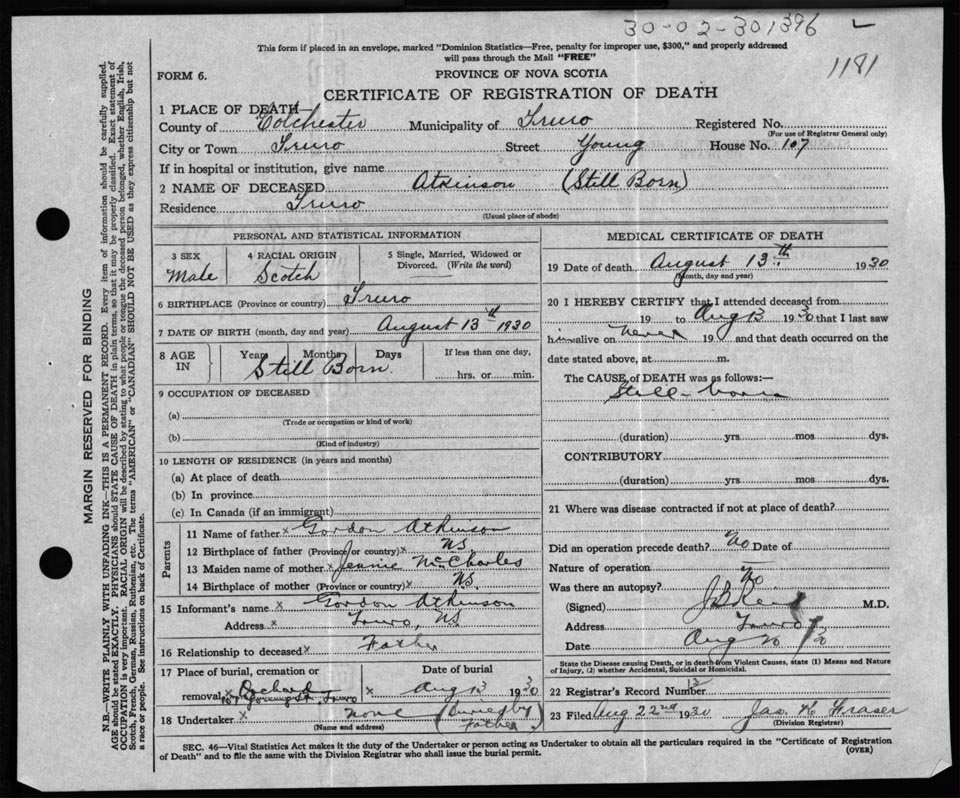 30-02-301396
1181
This form if placed in an envelope, marked "Dominion Statistics—Free, penalty for improper use, $300," and properly addressed
will pass through the Mail "FREE"
FORM 6.
PROVINCE OF NOVA SCOTIA
CERTIFICATE OF REGISTRATION OF DEATH
1 PLACE OF DEATH—
County of Colchester Municipality of Truro Registered No.
(For use of Registrar General only)
City or Town Truro Street Young House No. 107
If in hospital or institution, give name
2 NAME OF DECEASED Atkinson (Still Born)
Residence Truro
(Usual place of abode)
PERSONAL AND STATISTICAL INFORMATION
3 SEX
Male
4 RACIAL ORIGIN
Scotch
5 Single, Married, Widowed or
Divorced. (Write the word)
6 BIRTHPLACE (Province or country) Truro
7 DATE OF BIRTH (month, day and year) August 13th 1930
8 AGE IN
Years Months Days
Still Born
If less than one day,
hrs. or min.
9 OCCUPATION OF DECEASED
(a)
(Trade or occupation or kind of work)
(b)
(Kind of industry)
10 LENGTH OF RESIDENCE (in years and months)
(a) At place of death
(b) In province
(c) In Canada (if an immigrant)
Parents
11 Name of father x Gordon Atkinson
12 Birthplace of father (Province or country) x NS.
13 Maiden name of mother x Jennie McCharles
14 Birthplace of mother (Province or country) x NS.
15 Informant's name x Gordon Atkinson
Address x Truro, NS
16 Relationship to deceased x Father
17 Place of burial, cremation or
removal x Orchard
107 Young St, Truro
Date of burial
x Aug 13 1930
18 Undertaker x None (Buried by Father)
(Name and address)
MEDICAL CERTIFICATE OF DEATH
19 Date of death August 13th 1930
(Month, day and year)
20 I HEREBY CERTIFY that I attended deceased from
19 to Aug 13 1930 that I last saw
him alive on never 19 and that death occurred on the
date stated above, at m.
The CAUSE of DEATH was as follows:—
Still-born
(duration) yrs. mos dys.
CONTRIBUTORY
(duration) yrs. mos dys.
21 Where was disease contracted if not at place of death?
Did an operation precede death? No Date of
Nature of operation
Was there an autopsy? No
(Signed) M.D.
Address Truro
Date Aug
State the Disease causing Death, or in death from Violent Causes, state (1) Means and Nature
of Injury, (2) whether Accidental, Suicidal or Homicidal.
22 Registrar's Record Number 13
23 Filed Aug 22nd 1930 Jas. K Fraser
(Division Registrar)
SEC. 46—Vital Statistics Act makes it the duty of the Undertaker or person acting as Undertaker to obtain all the particulars required in the "Certificate of Registration
of Death" and to file the same with the Division Registrar who shall issue the burial permit.
(OVER)
MARGIN RESERVED FOR BINDING
N.B.—WRITE PLAINLY WITH UNFADING INK—THIS IS A PERMANENT RECORD. Every item of information should be carefully supplied.
AGE should be stated EXACTLY. PHYSICIANS should STATE CAUSE OF DEATH in plain terms, so that it may be properly classified. Exact statement of
OCCUPATION is very important. RACIAL ORIGIN will be described by stating to what people or tongue the deceased person belonged, whether English, Irish,
Scotch, French, German, Russian, Ruthenian, etc. The terms "AMERICAN" or "CANADIAN" SHOULD NOT BE USED as they express citizenship but not
a race or people. See instructions on back of Certificate.